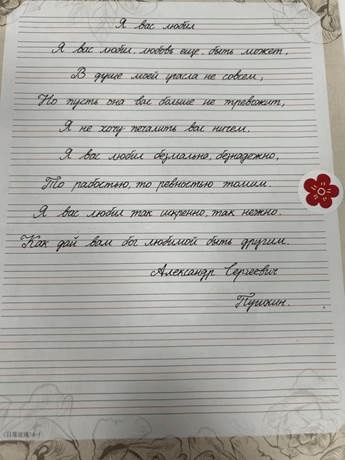 Я вас любил
Я вас любил, любовь еще, быть может,
В душе моей угасла не совсем,
Но пусть она вас больше не тревожит,
Я не хочу печалить вас ничем.
Я вас любил безмолвно, безнадежно,
То радостью, то ревностью томим.
Я вас любил так искренно, так нежно.
Как дай вам бог любимой быть другим.
Александр Сергеевич
Пушкин.